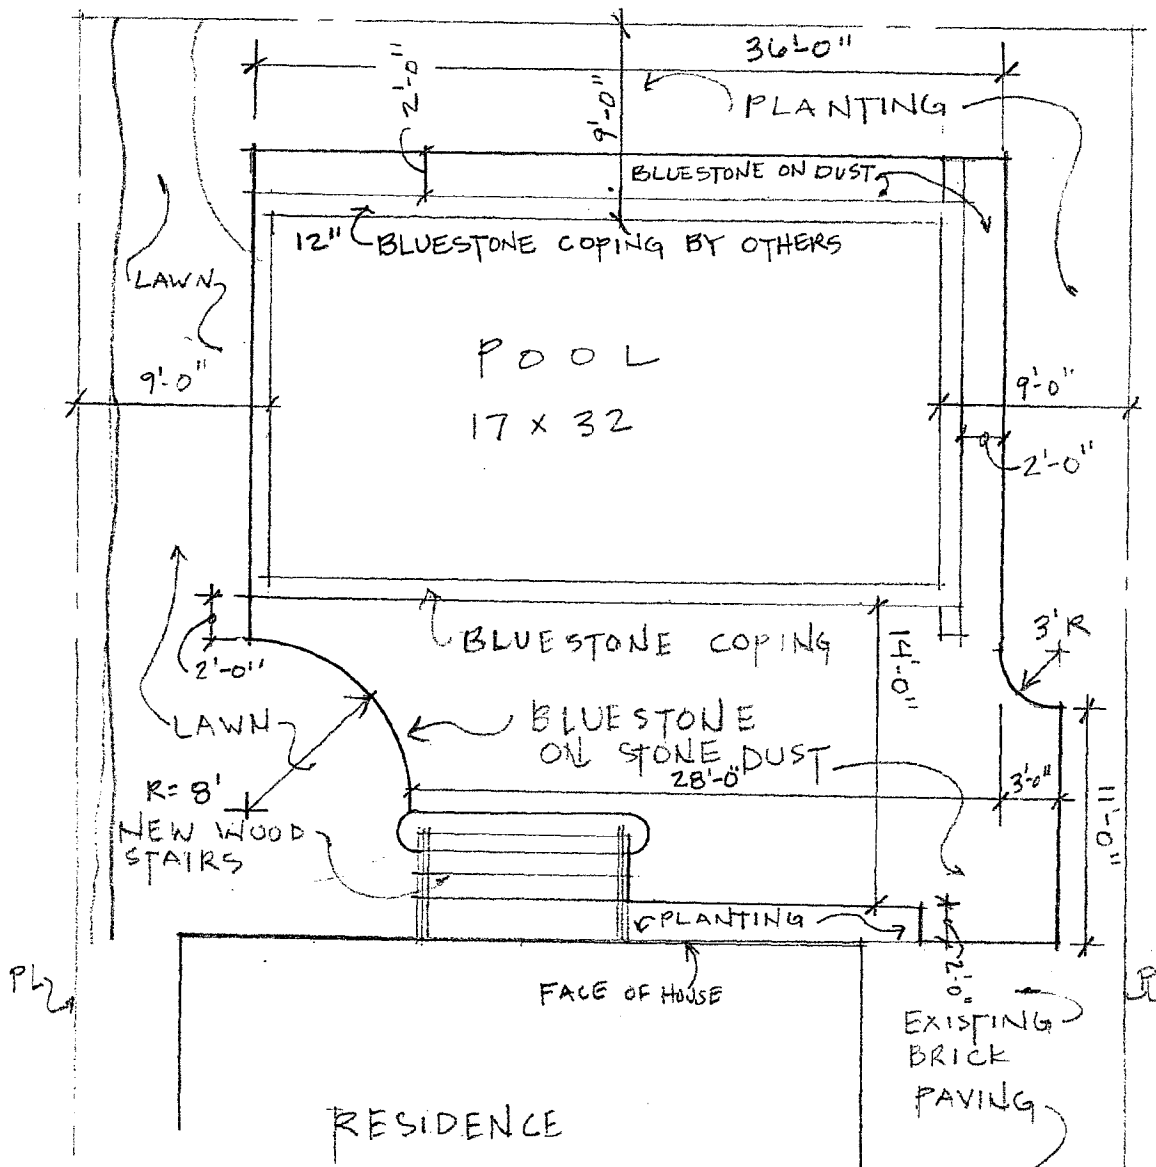 36'-0"
2'-0"
9'-0"
PLANTING
BLUESTONE ON DUST
12" BLUESTONE COPING BY OTHERS
LAWN
POOL
17 x 32
9'-0"
9'-0"
2'-0"
3' R
BLUESTONE COPING
14'-0"
2'-0"
LAWN
BLUESTONE
ON STONE DUST
28'-0"
3'-0"
R= 8'
11'-0"
NEW WOOD
STAIRS
PLANTING
2'-0"
FACE OF HOUSE
PL
PL
EXISTING
BRICK
PAVING
RESIDENCE